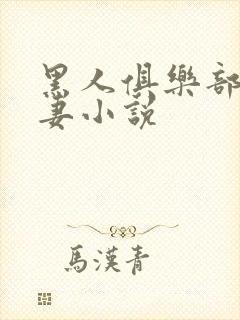 黑人俱樂部
妻小說
馬漢青